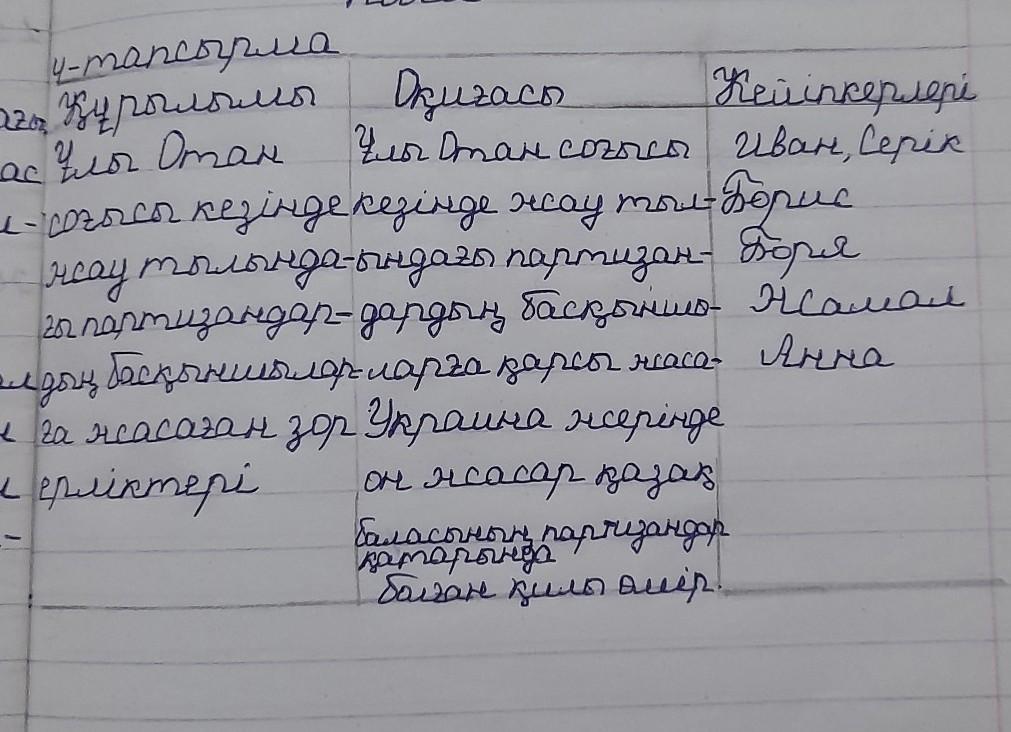 4-тапсырма
Құрылымы Оқиғасы Кейіпкерлері
ас Ұлы Отан Ұлы Отан соғысы Иван, Серік
соғысы кезінде кезінде жау тыл- Борис
жау тылында- ындағы партизан- Боря
ғы партизандар- дардың басқыншы- Жамал
дың басқыншылар- ларға қарсы жаса- Анна
ға жасаған зор Украина жерінде
ерліктері он жасар қазақ
баласының партизандар
қатарында
болған қилы өмір.